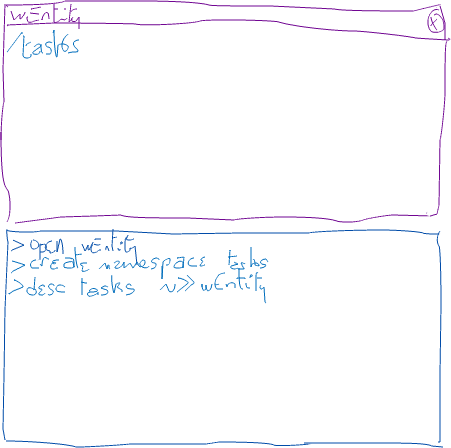 wEntity
(x)
/tasks
> open wEntity
> create namespace tasks
> desc tasks v>> wEntity